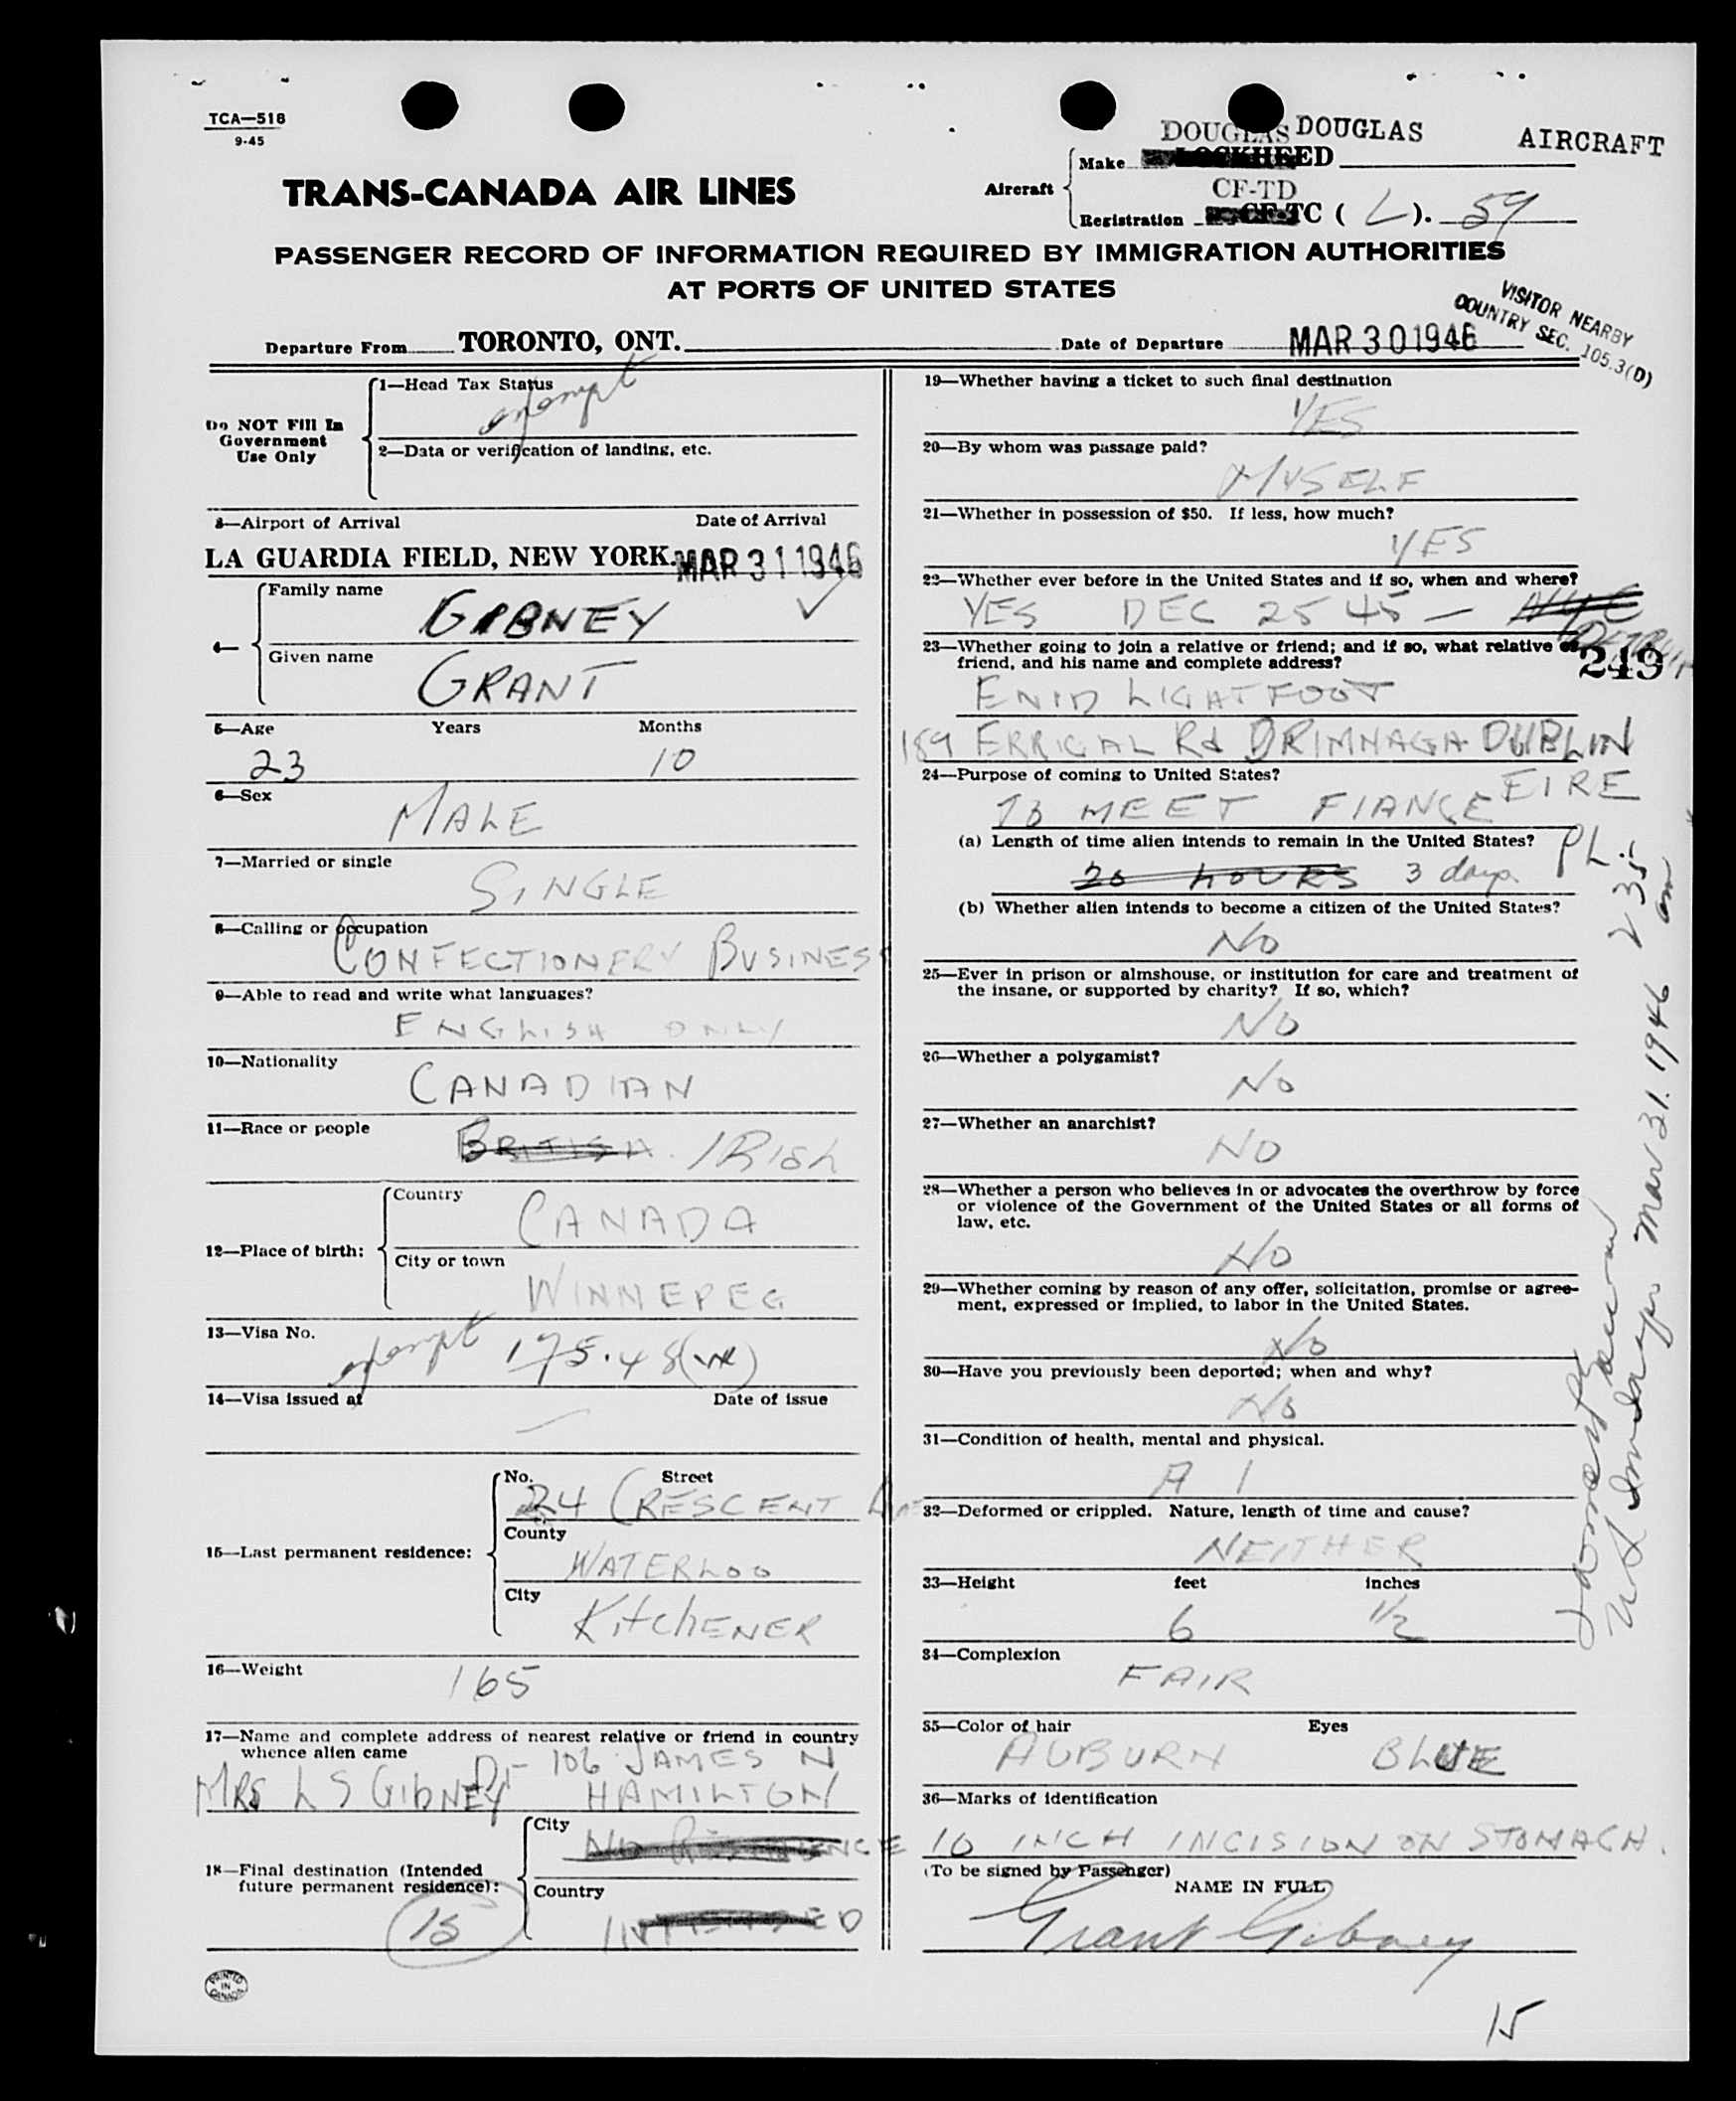 TCA—518
9-45
DOUGLAS DOUGLAS AIRCRAFT
Aircraft
Make LOCKHEED
TRANS-CANADA AIR LINES
CF-TD
Registration CF-TC ( L ). 59
PASSENGER RECORD OF INFORMATION REQUIRED BY IMMIGRATION AUTHORITIES
AT PORTS OF UNITED STATES
VISITOR NEARBY
COUNTRY SEC. 105.3(D)
Departure From TORONTO, ONT. Date of Departure MAR 30 1946
Do NOT Fill In
Government
Use Only
1—Head Tax Status
exempt
2—Data or verification of landing, etc.
3—Airport of Arrival Date of Arrival
LA GUARDIA FIELD, NEW YORK. MAR 31 1946
4—
Family name
GIBNEY
Given name
GRANT
5—Age Years Months
23 10
6—Sex
MALE
7—Married or single
SINGLE
8—Calling or occupation
CONFECTIONERY BUSINESS
9—Able to read and write what languages?
ENGLISH ONLY
10—Nationality
CANADIAN
11—Race or people
BRITISH. IRISH
12—Place of birth:
Country
CANADA
City or town
WINNEPEG
13—Visa No.
exempt 175.48
14—Visa issued at Date of issue
15—Last permanent residence:
No. Street
24 CRESCENT
County
WATERLOO
City
KITCHENER
16—Weight
165
17—Name and complete address of nearest relative or friend in country
whence alien came
106 JAMES N
MRS L S GIBNEY HAMILTON
18—Final destination (Intended
future permanent residence):
City
NO RESIDENCE
Country
INTENDED
15
PRINTED
IN
CANADA
19—Whether having a ticket to such final destination
YES
20—By whom was passage paid?
MYSELF
21—Whether in possession of $50. If less, how much?
YES
22—Whether ever before in the United States and if so, when and where?
YES DEC 25 45 — NYC
DETROIT
23—Whether going to join a relative or friend; and if so, what relative or
friend, and his name and complete address?
249
ENID LIGHTFOOT
189 ERRIGAL Rd DRIMNAGH DUBLIN
EIRE
24—Purpose of coming to United States?
TO MEET FIANCE
(a) Length of time alien intends to remain in the United States?
20 HOURS 3 days
(b) Whether alien intends to become a citizen of the United States?
NO
25—Ever in prison or almshouse, or institution for care and treatment of
the insane, or supported by charity? If so, which?
NO
26—Whether a polygamist?
NO
27—Whether an anarchist?
NO
28—Whether a person who believes in or advocates the overthrow by force
or violence of the Government of the United States or all forms of
law, etc.
NO
29—Whether coming by reason of any offer, solicitation, promise or agree-
ment, expressed or implied, to labor in the United States.
NO
30—Have you previously been deported; when and why?
NO
31—Condition of health, mental and physical.
A 1
32—Deformed or crippled. Nature, length of time and cause?
NEITHER
33—Height feet inches
6 1/2
34—Complexion
FAIR
35—Color of hair Eyes
AUBURN BLUE
36—Marks of identification
10 INCH INCISION ON STOMACH.
(To be signed by Passenger)
NAME IN FULL
Grant Gibney
15
PL.
2 35
am
Mar 31. 1946